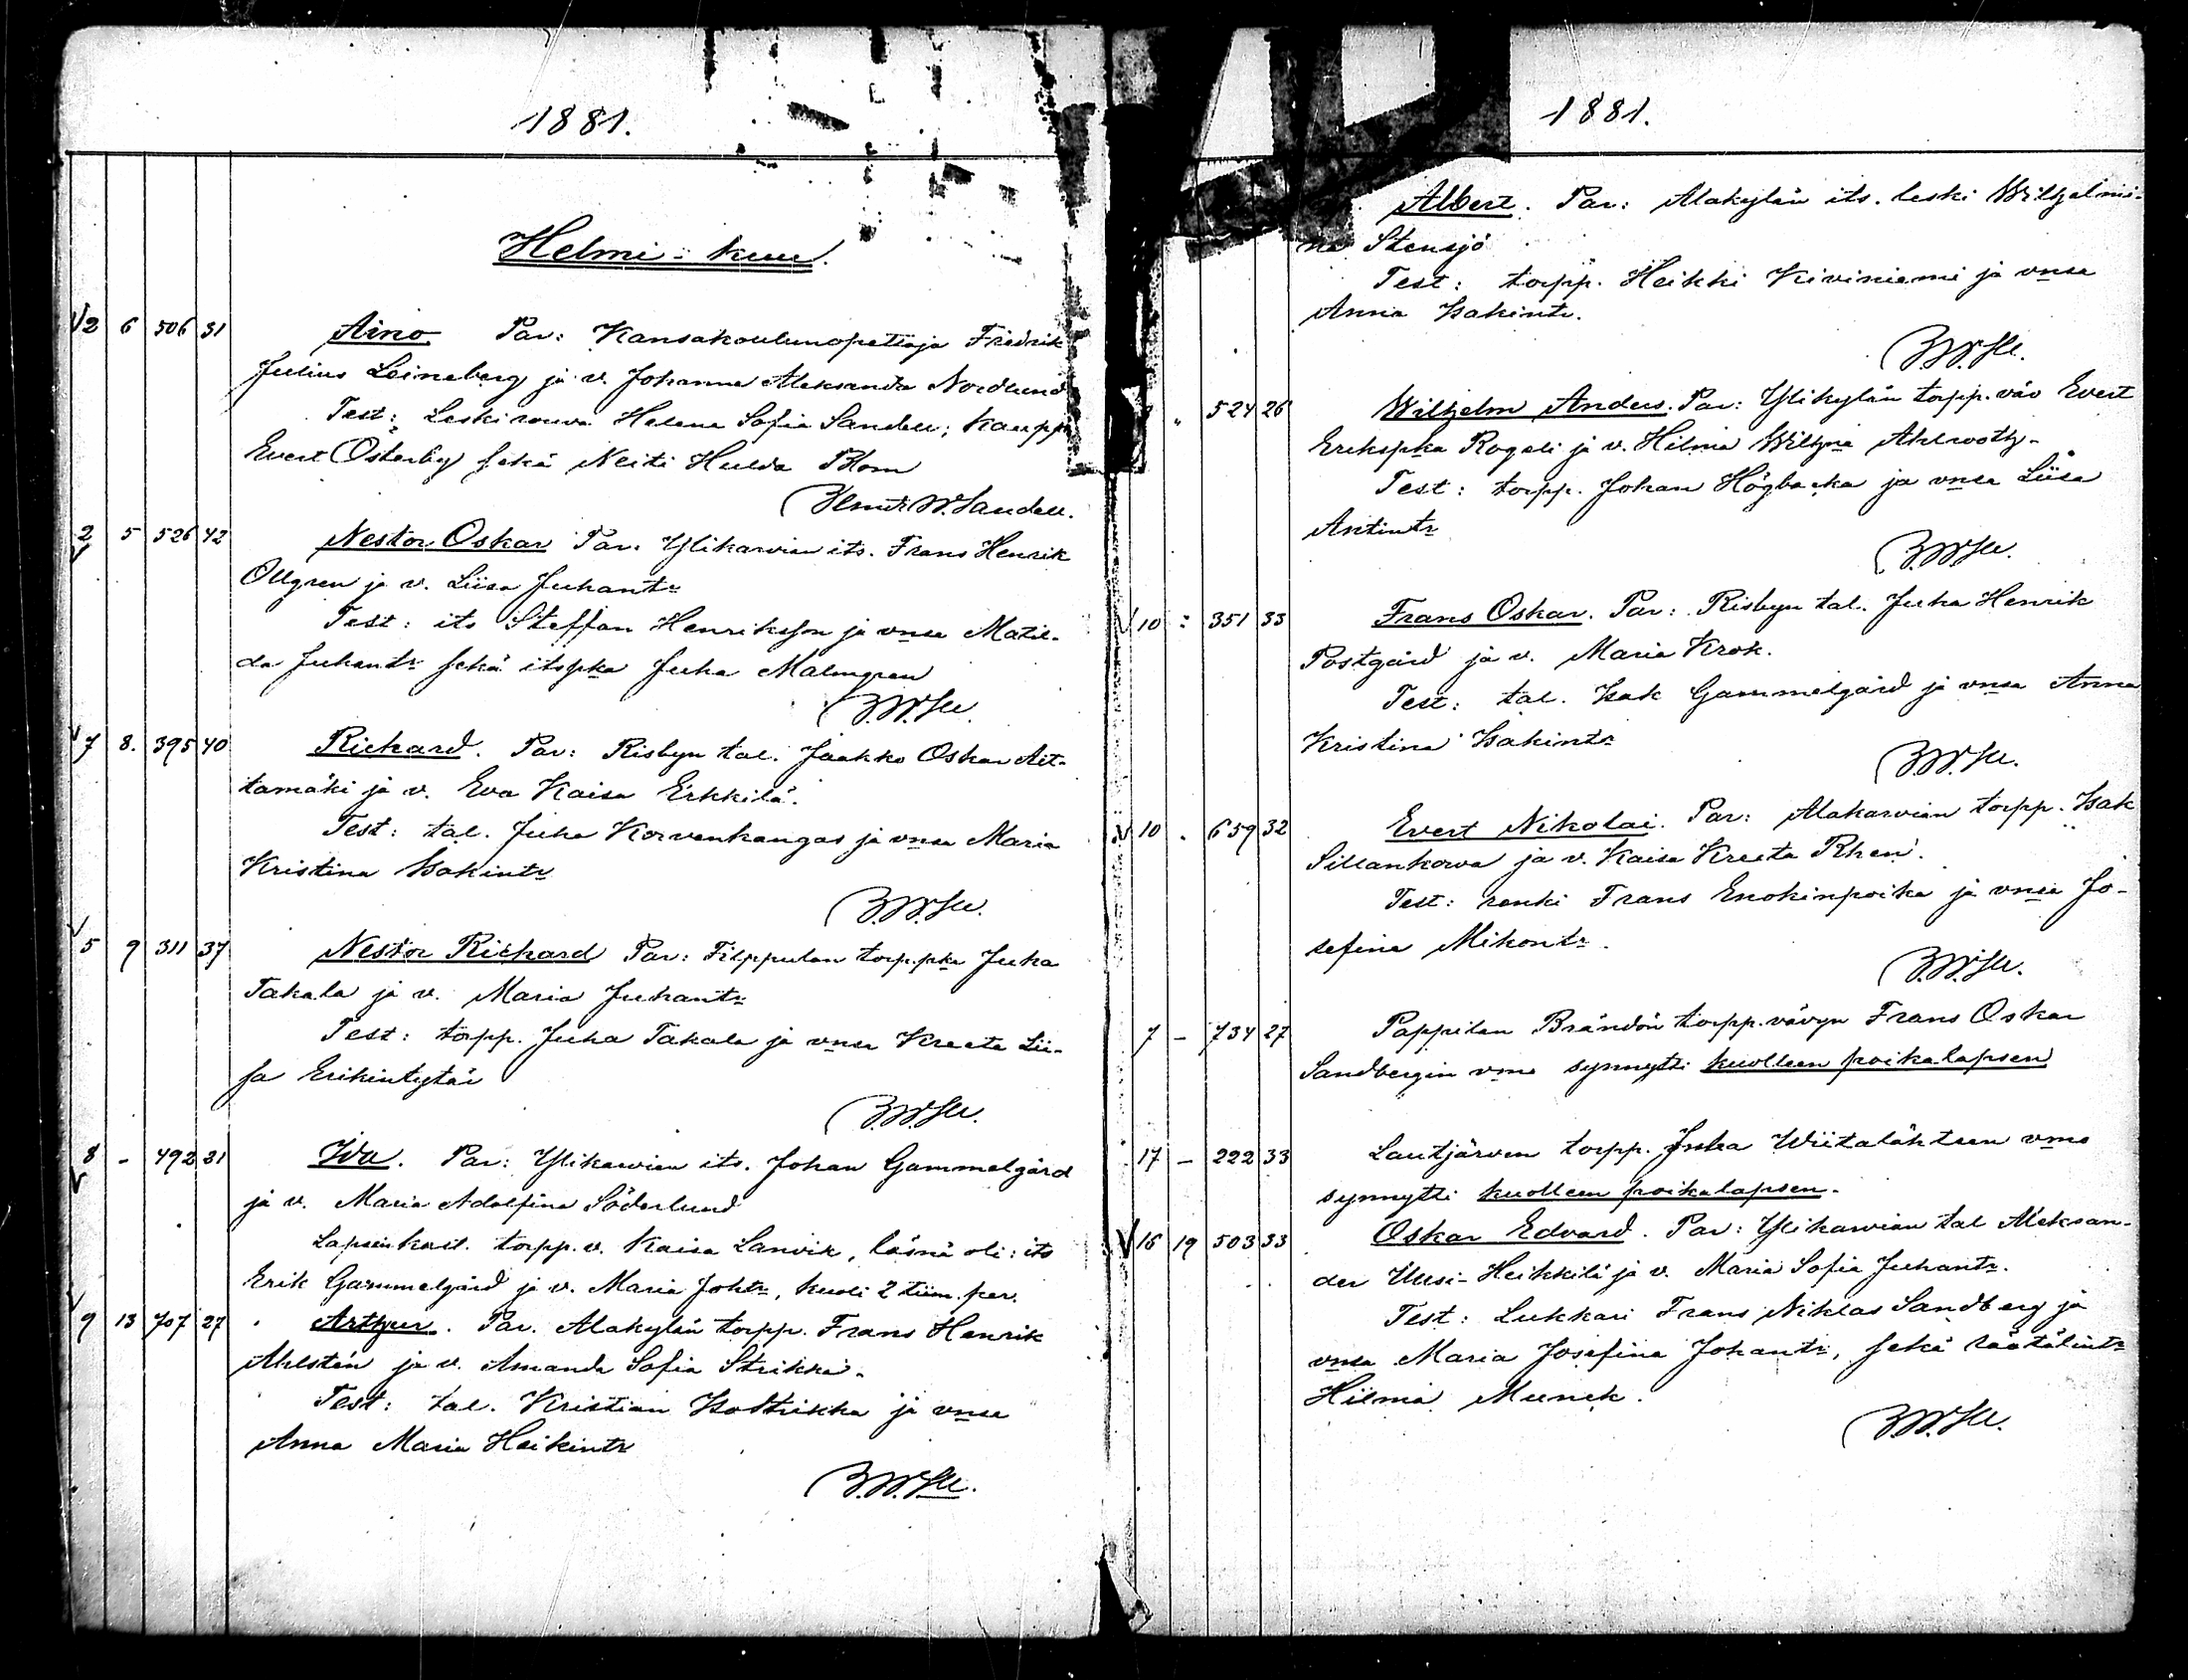 1881.
Helmi-kuu.
2 6 506 31 Aino Par: Kansakoulunopettaja Fredrik
Julius Leineberg ja v. Johanna Aleksandra Nordlund
Test: Leskirouva Helena Sofia Sandell; Kaupp
Evert Österby sekä Neiti Hulda Blom
W. Sandell.
2 5 526 42 Nestor Oskar Par: Ylikarvian its. Frans Henrik
Ollgren ja v. Liisa Juhantr
Test: its Steffan Henriksson ja vnsa Matil-
da Juhantr sekä itspka Juha Malmgren
7 8. 395 40 Richard. Par: Risbyn tal. Jaakko Oskar Ait-
tamäki ja v. Eva Kaisa Erkkilä.
Test: tal. Juha Korvenkangas ja vnsa Maria
Kristina Isakintr
5 9 311 37 Nestor Richard Par: Filppulan torp.pka Juha
Takala ja v. Maria Juhantr
Test: torpp. Juha Takala ja vnsa Kreeta Lii-
sa Erikintytär
8 - 492 31 Ida. Par: Ylikarvian its. Johan Gammelgård
ja v. Maria Adolfina Söderlund
Lapsenkast. torpp. v. Kaisa Lanvik, läsnä oli: its
Erik Gammelgård ja v. Maria Johtr, kuoli 2 tiim. per.
9 13 707 27 Arthur. Par. Alakylän torpp. Frans Henrik
Ahlstén ja v. Amanda Sofia Strikka.
Test: tal. Kristian Isostrikka ja vnsa
Anna Maria Heikintr
1881.
Albert. Par: Alakylän its. leski Wilhelmi-
na Stensjö
Test: torpp. Heikki Kiviniemi ja vnsa
Anna Isakintr.
" 524 26 Wilhelm Anders. Par: Ylikylän torpp. väv Evert
Erikspka Rogeli ja v. Hilma Wilhna Ahlrooth.
Test: torpp. Johan Högbacka ja vnsa Liisa
Antintr
10 : 351 33 Frans Oskar. Par: Risbyn tal. Juha Henrik
Postgård ja v. Maria Krok.
Test: tal. Isak Gammelgård ja vnsa Anna
Kristina Isakintr
10 . 659 32 Evert Nikolai. Par: Alakarvian torpp. Isak
Sillankorva ja v. Kaisa Kreeta Rhen.
Test: renki Frans Enokinpoika ja vnsa Jo-
sefina Mikontr.
7 - 734 27 Pappilan Brändön torpp. vävyn Frans Oskar
Sandbergin vmo synnytti kuolleen poikalapsen
17 - 222 33 Lautjärven torpp. Juha Wiitalähteen vmo
synnytti kuolleen poikalapsen.
16 19 503 33 Oskar Edvard. Par: Ylikarvian tal Aleksan-
der Uusi-Heikkilä ja v. Maria Sofia Juhantr.
Test: Lukkari Frans Niklas Sandberg ja
vnsa Maria Josefina Johantr, sekä räätälintr
Hilma Munck.